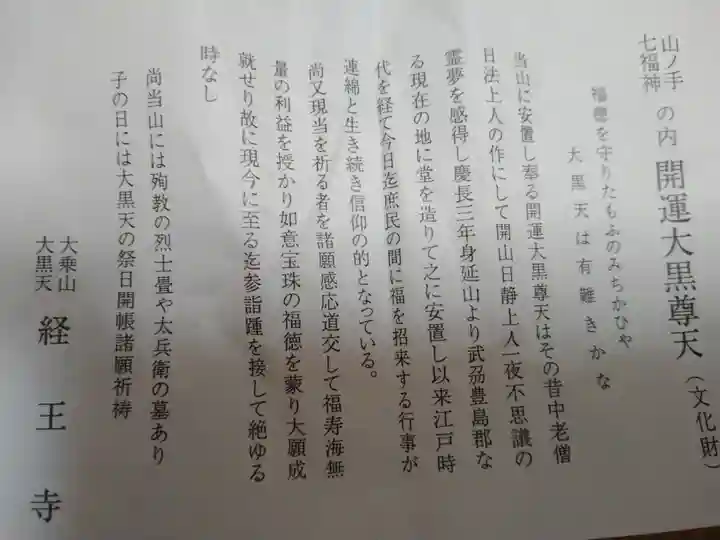 山ノ手七福神 の内 開運大黒尊天(文化財)
福徳を守りたもふのみちかひや
大黒天は有難きかな
当山に安置し奉る開運大黒尊天はその昔中老僧
日法上人の作にして開山日静上人一夜不思議の
霊夢を感得し慶長三年身延山より武刕豊島郡な
る現在の地に堂を造りて之に安置し以来江戸時
代を経て今日迄庶民の間に福を招来する行事が
連綿と生き続き信仰の的となっている。
尚又現当を祈る者を諸願感応道交して福寿海無
量の利益を授かり如意宝珠の福徳を蒙り大願成
就せり故に現今に至る迄参詣踵を接して絶ゆる
時なし
尚当山には殉教の烈士畳や太兵衛の墓あり
子の日には大黒天の祭日開帳諸願祈祷
大乗山
大黒天
経王寺